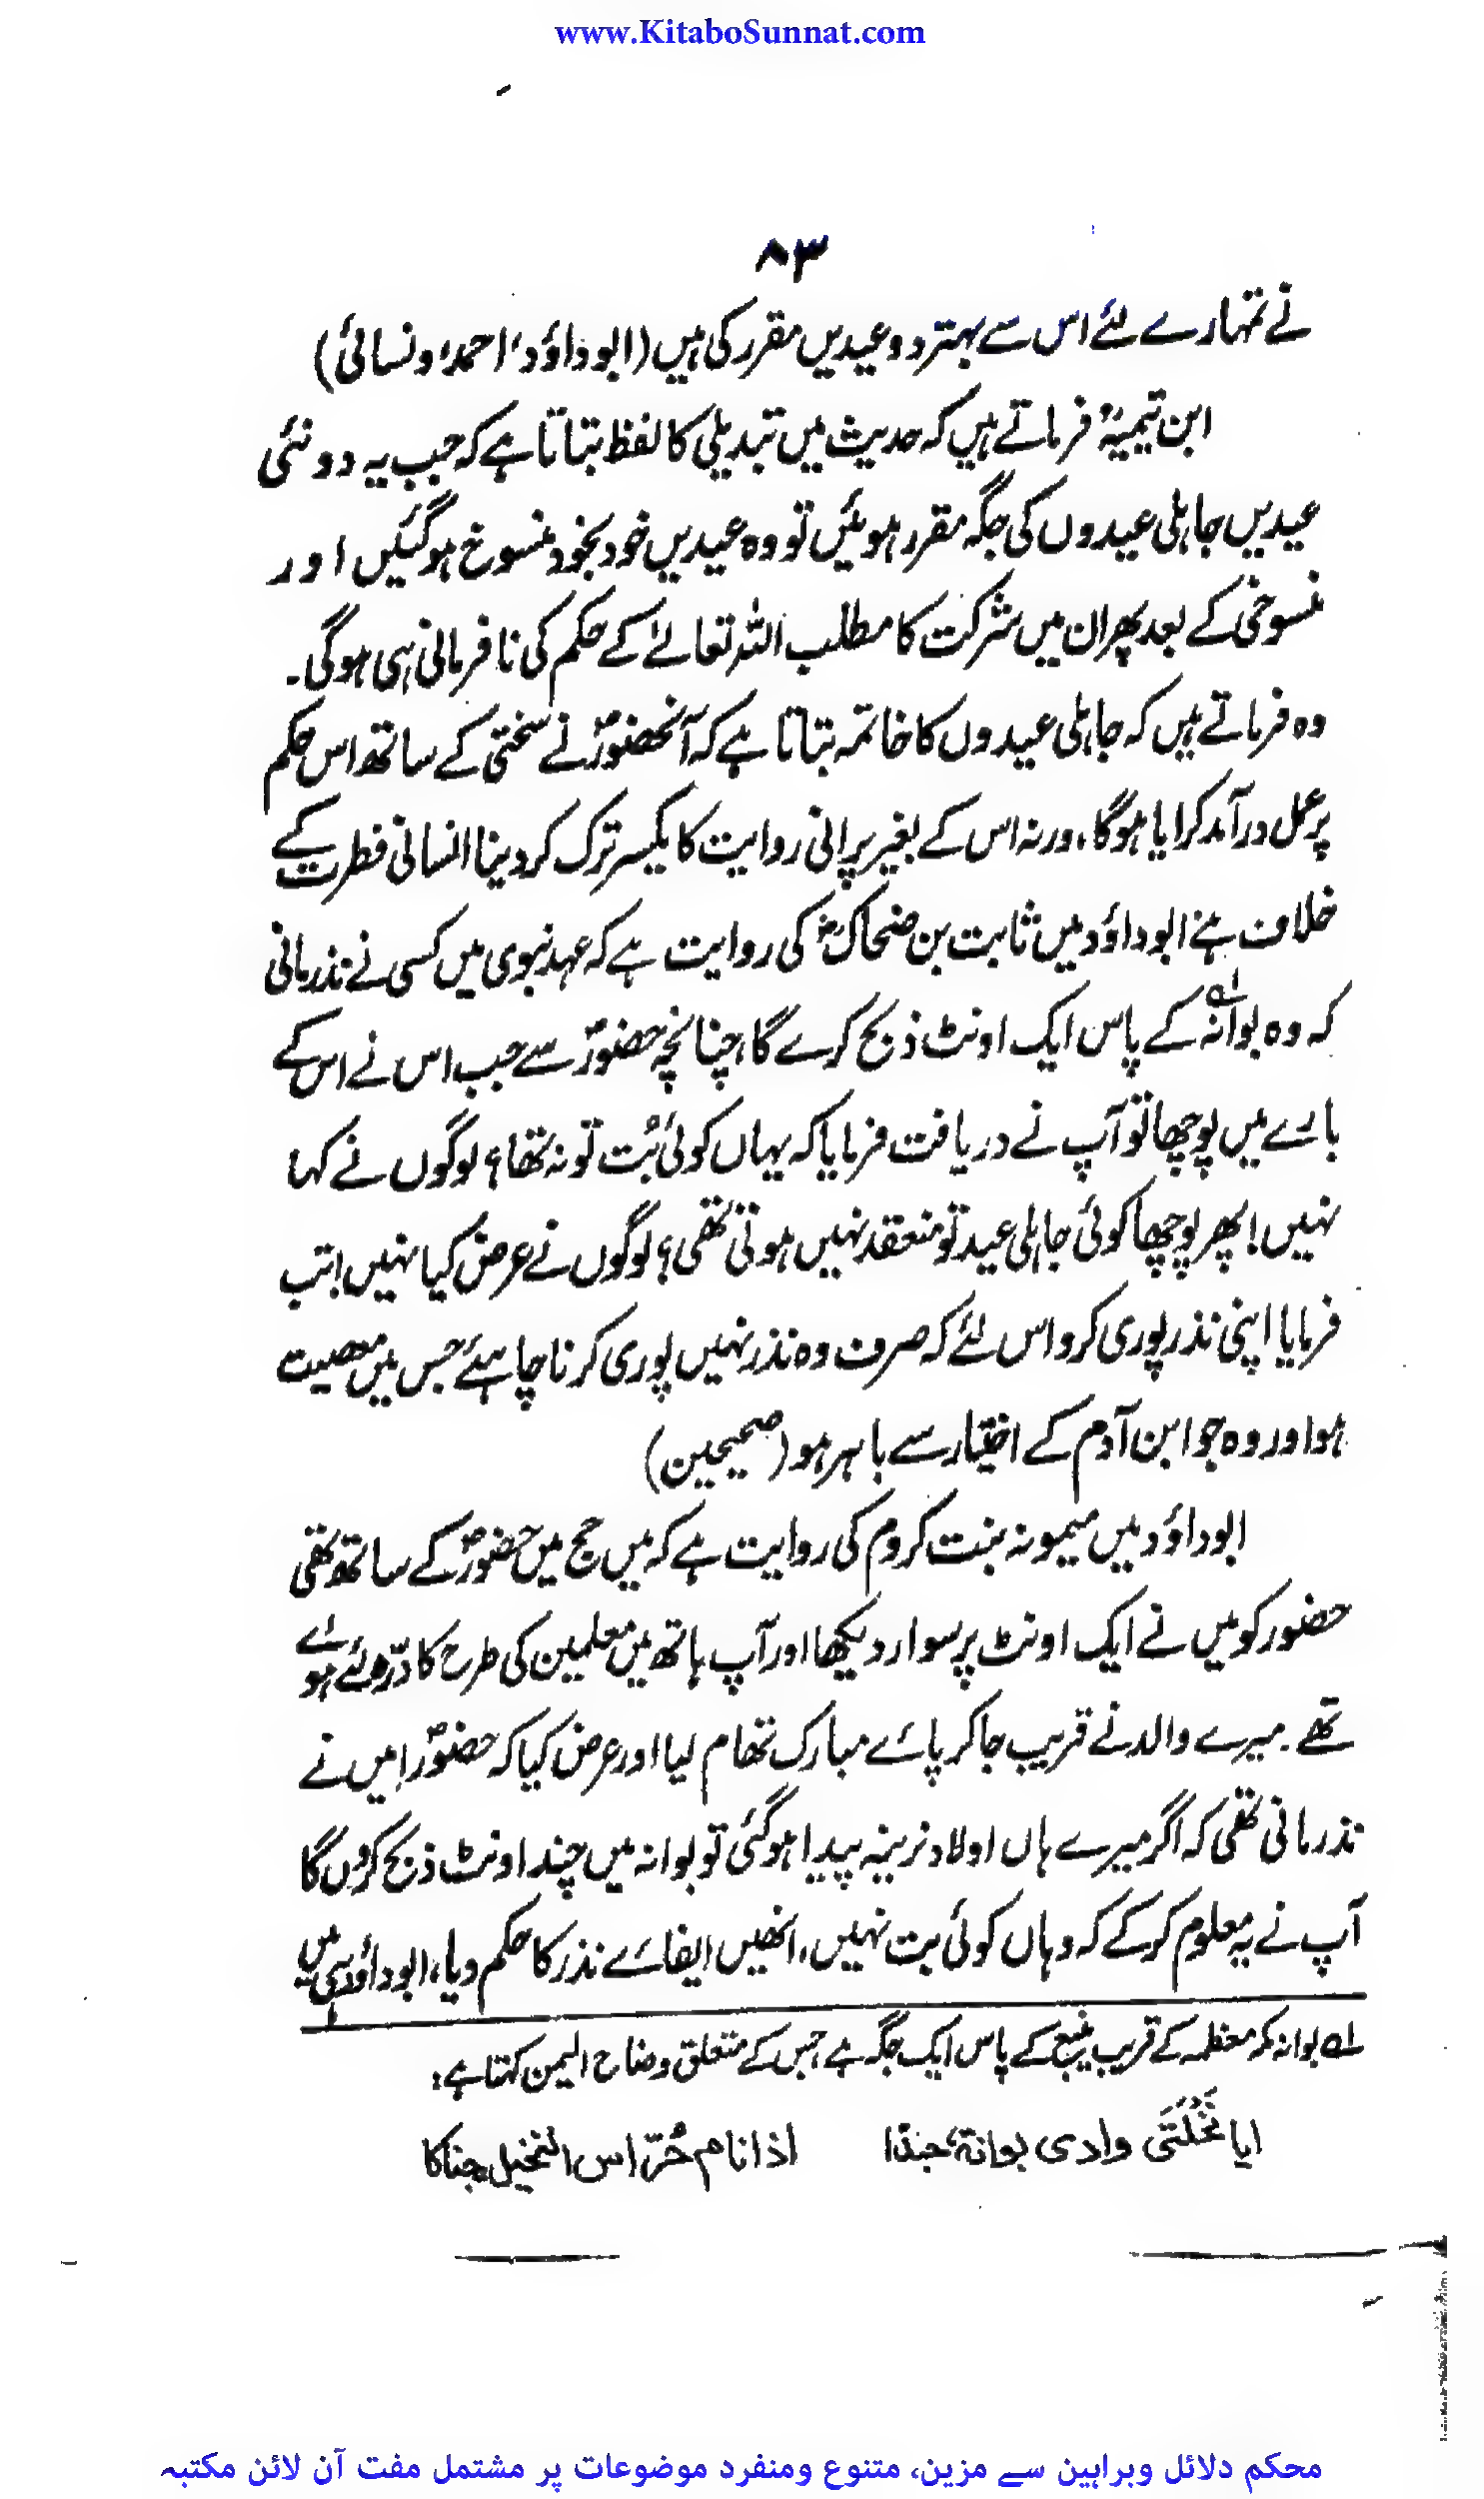 www.KitaboSunnat.com
۸۳
نے تمہارے لئے اس سے بہتر دو عیدیں مقرر کی ہیں (ابوداؤد، احمد، ونسائی)
ابن تیمیہؒ فرماتے ہیں کہ حدیث میں تبدیلی کا لفظ بتاتا ہے کہ جب یہ دو نئی
عیدیں جاہلی عیدوں کی جگہ مقرر ہوئیں تو وہ عیدیں خود بخود منسوخ ہوگئیں اور
منسوخی کے بعد پھر ان میں شرکت کا مطلب اللہ تعالےٰ کے حکم کی نافرمانی ہی ہوگی۔
وہ فرماتے ہیں کہ جاہلی عیدوں کا خاتمہ بتاتا ہے کہ آنحضورؐ نے سختی کے ساتھ اس حکم
پر عمل درآمد کرایا ہوگا، ورنہ اس کے بغیر پرانی روایت کا یکسر ترک کر دینا انسانی فطرت کے
خلاف ہے ابوداؤد میں ثابت بن ضحاکؓ کی روایت ہے کہ عہد نبوی میں کسی نے نذر مانی
کہ وہ بوانہ؎۱ کے پاس ایک اونٹ ذبح کرے گا، چنانچہ حضورؐ سے جب اس نے اس کے
بارے میں پوچھا تو آپ نے دریافت فرمایا کہ یہاں کوئی بُت تو نہ تھا؟ لوگوں نے کہا
نہیں! پھر پوچھا کوئی جاہلی عید تو منعقد نہیں ہوتی تھی؟ لوگوں نے عرض کیا نہیں! تب
فرمایا اپنی نذر پوری کرو اس لئے کہ صرف وہ نذر نہیں پوری کرنا چاہئے جس میں معصیت
ہو اور وہ جو ابن آدم کے اختیار سے باہر ہو (صحیحین)
ابوداؤد میں میمونہ بنت کروم کی روایت ہے کہ میں حج میں حضورؐ کے ساتھ تھی
حضور کو میں نے ایک اونٹ پر سوار دیکھا اور آپ ہاتھ میں معلمین کی طرح کا دُرّہ لئے ہوئے
تھے۔ میرے والد نے قریب جاکر پائے مبارک تھام لیا اور عرض کیا کہ حضورؐ! میں نے
نذر مانی تھی کہ اگر میرے ہاں اولاد نرینہ پیدا ہوگئی تو بوانہ میں چند اونٹ ذبح کروں گا
آپ نے یہ معلوم کرکے کہ وہاں کوئی بت نہیں، انھیں ایفائے نذر کا حکم دیا، ابوداؤد ہی میں
؎۱ بوانہ مکہ معظمہ کے قریب ینبع کے پاس ایک جگہ ہے جس کے متعلق وضاح الیمن کہتا ہے:
ایا نَخْلَتَی وادی بوانة حبّذا اذا نام حُرّاس النخیل جناکما
محکم دلائل وبراہین سے مزین، متنوع ومنفرد موضوعات پر مشتمل مفت آن لائن مکتبہ